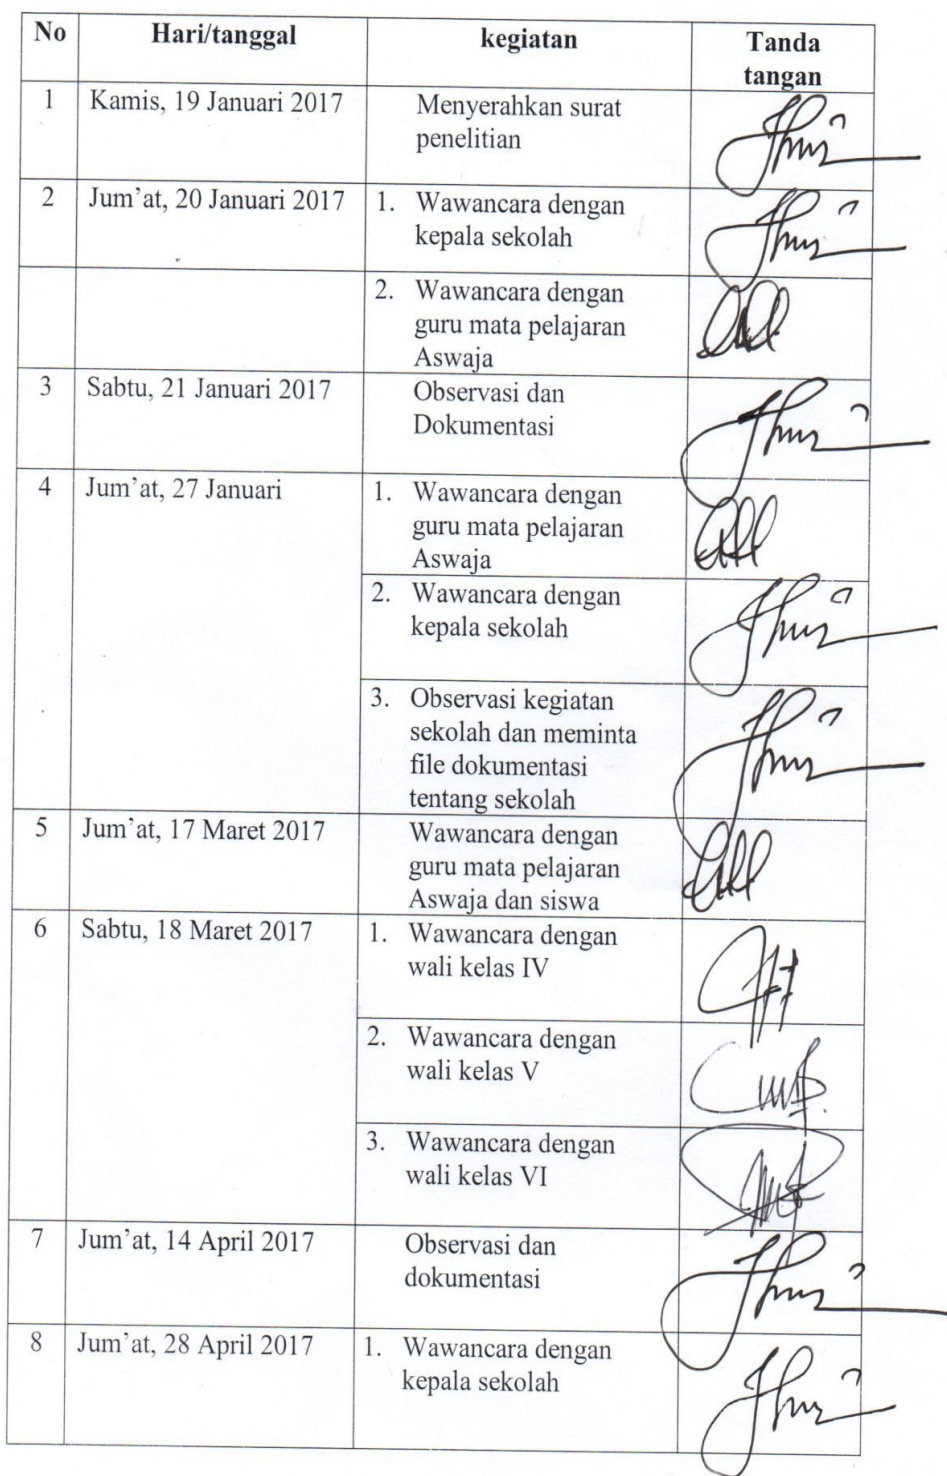 No Hari/tanggal kegiatan Tanda
tangan
1 Kamis, 19 Januari 2017 Menyerahkan surat
penelitian
2 Jum'at, 20 Januari 2017 1. Wawancara dengan
kepala sekolah
2. Wawancara dengan
guru mata pelajaran
Aswaja
3 Sabtu, 21 Januari 2017 Observasi dan
Dokumentasi
4 Jum'at, 27 Januari 1. Wawancara dengan
guru mata pelajaran
Aswaja
2. Wawancara dengan
kepala sekolah
3. Observasi kegiatan
sekolah dan meminta
file dokumentasi
tentang sekolah
5 Jum'at, 17 Maret 2017 Wawancara dengan
guru mata pelajaran
Aswaja dan siswa
6 Sabtu, 18 Maret 2017 1. Wawancara dengan
wali kelas IV
2. Wawancara dengan
wali kelas V
3. Wawancara dengan
wali kelas VI
7 Jum'at, 14 April 2017 Observasi dan
dokumentasi
8 Jum'at, 28 April 2017 1. Wawancara dengan
kepala sekolah